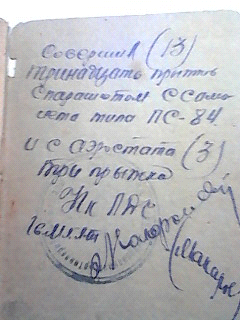 Совершил (13)
тринадцать прыжков
с парашютом с само
лета типа ПС-84
и с аэростата (3)
три прыжка
Нк ПДС